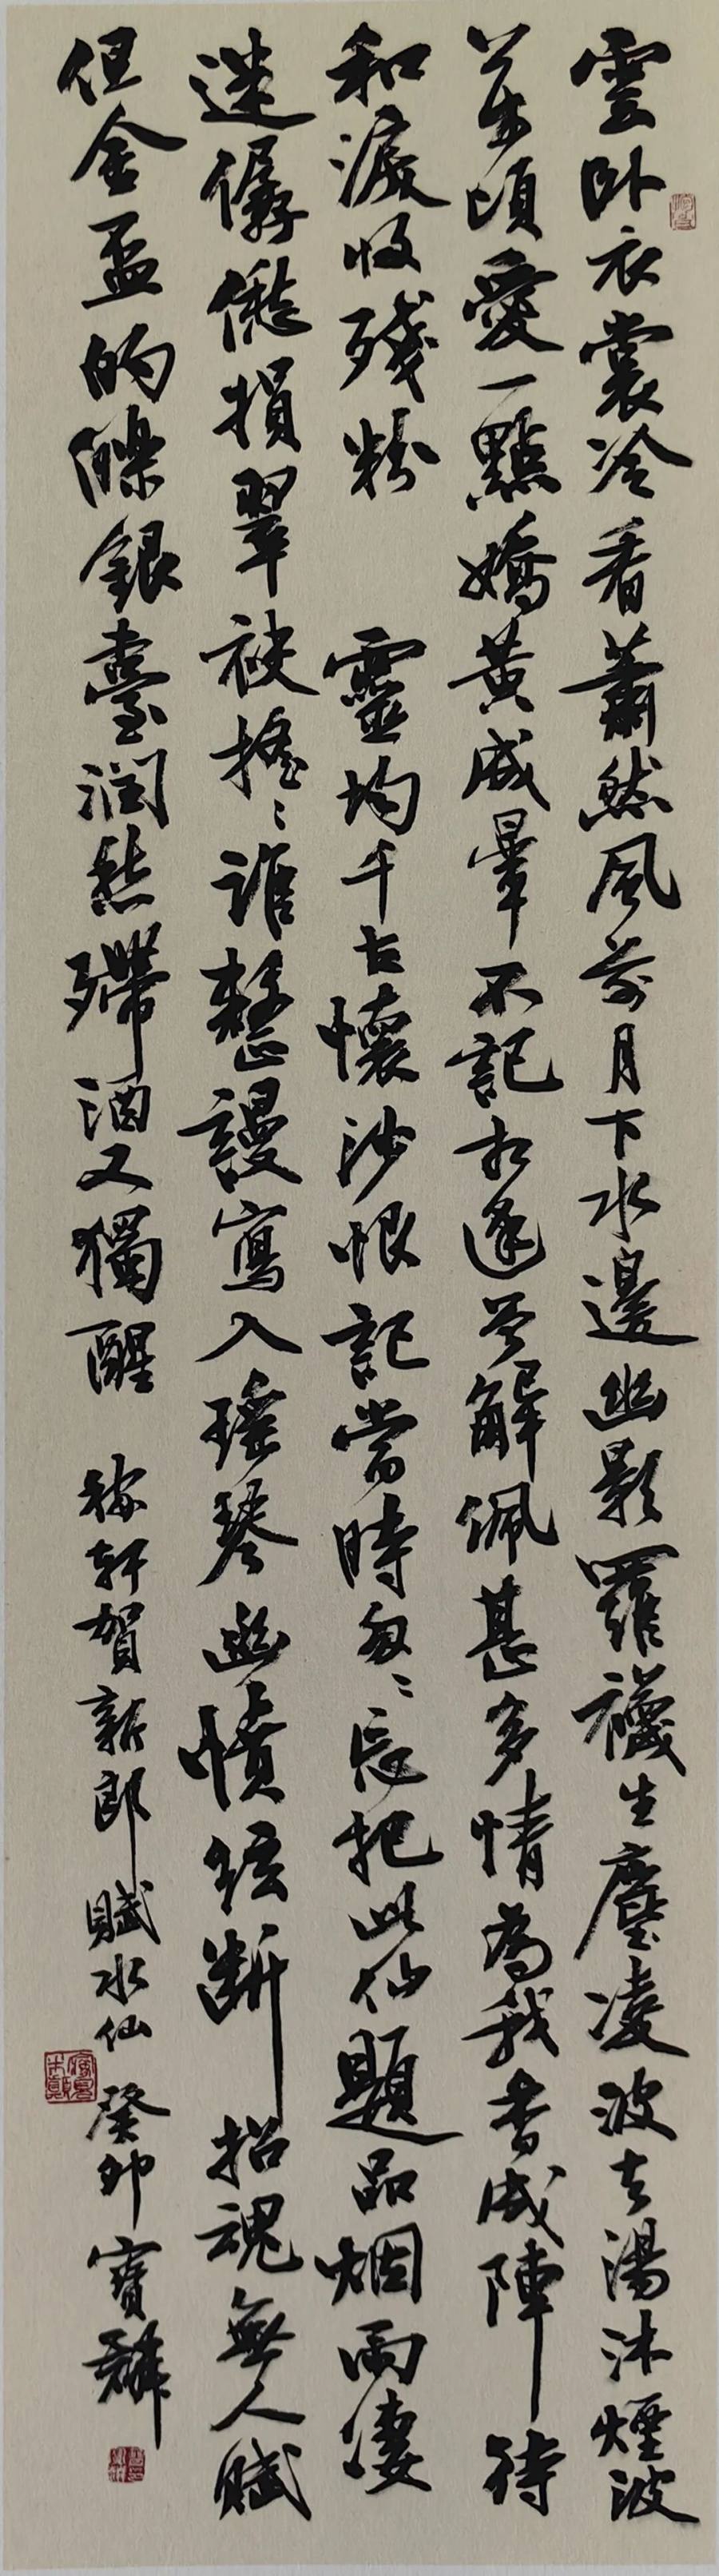 雲卧衣裳冷看蕭然風前月下水邊幽影羅襪生塵凌波去湯沐煙波
萬頃愛一點嬌黃成暈不記相逢曾解佩甚多情為我香成陣待
和淚收殘粉 靈均千古懷沙恨記當時匆ゞ忘把此仙題品烟雨凄
迷僝僽損翠袂搖ゞ誰整謾寫入瑤琴幽憤絃斷招魂無人賦
但金盃的皪銀臺潤愁殢酒又獨醒 稼軒賀新郎賦水仙 癸卯寶麟